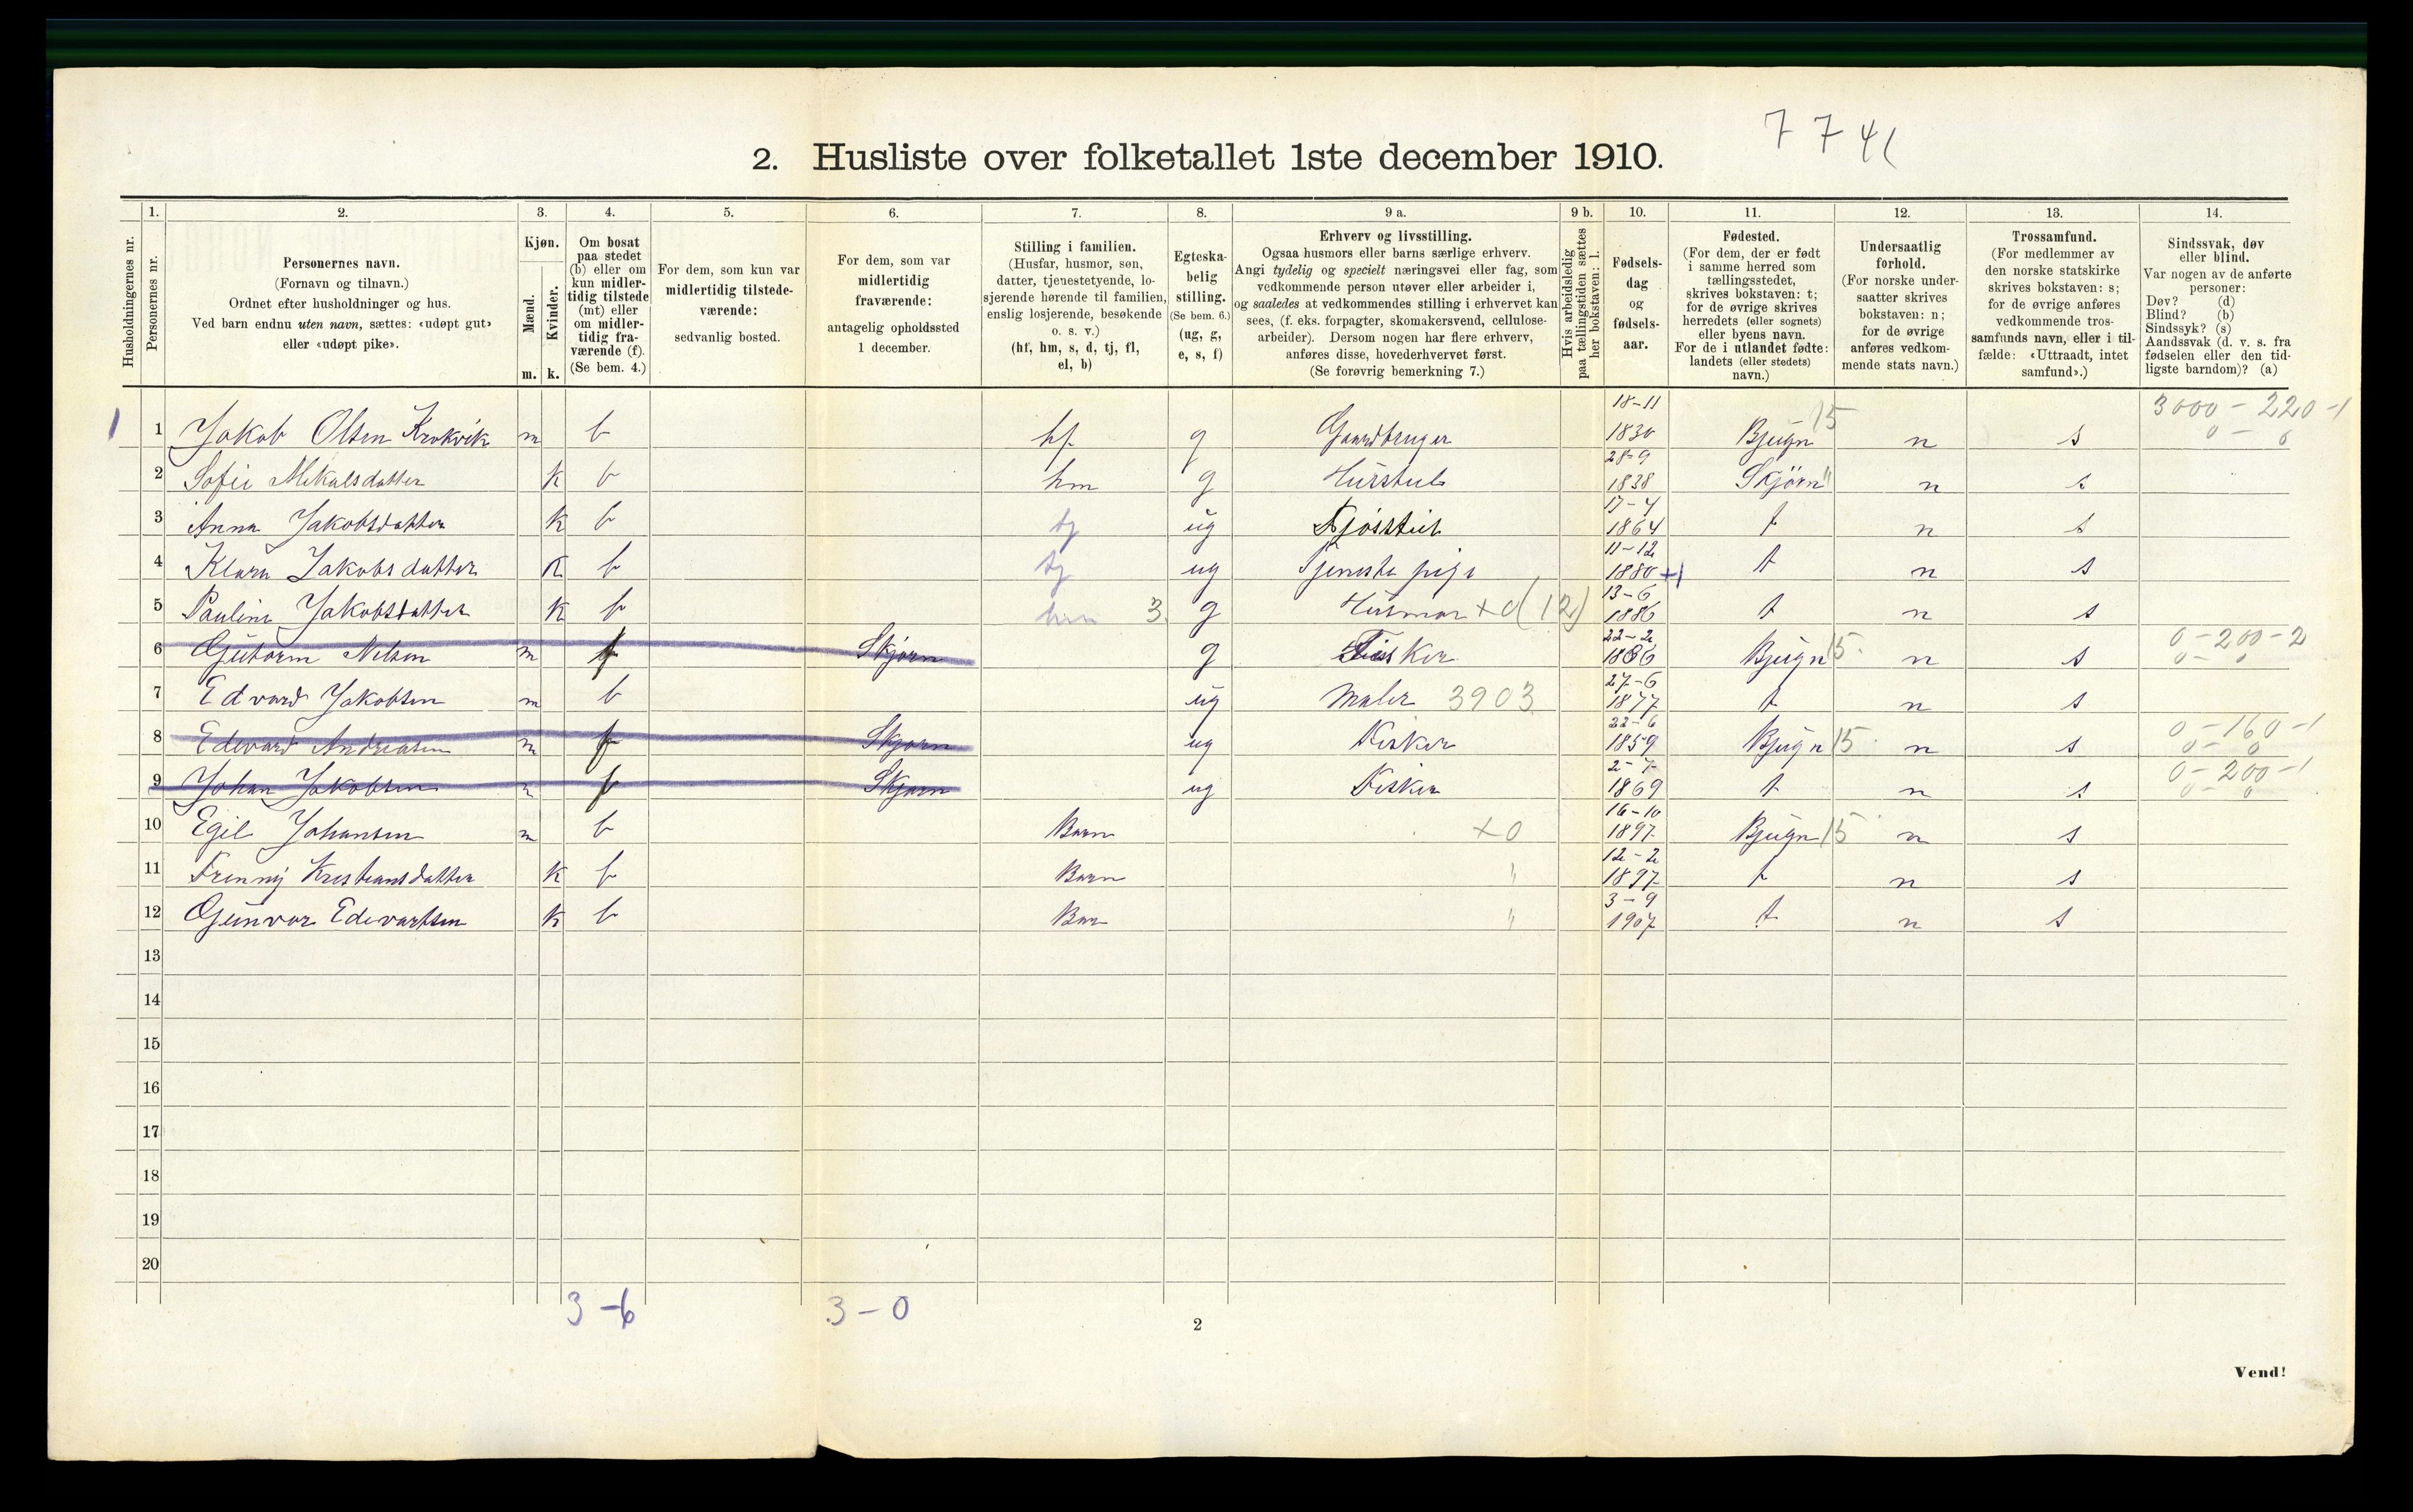 7 7 4(
2. Husliste over folketallet 1ste december 1910.
Husholdningernes nr.
1. Personernes nr.
2. Personernes navn.
(Fornavn og tilnavn.)
Ordnet efter husholdninger og hus.
Ved barn endnu uten navn, sættes: «udøpt gut»
eller «udøpt pike».
3. Kjøn.
Mænd. m.
Kvinder. k.
4. Om bosat
paa stedet
(b) eller om
kun midler-
tidig tilstede
(mt) eller
om midler-
tidig fra-
værende (f).
(Se bem. 4.)
5. For dem, som kun var
midlertidig tilstede-
værende:
sedvanlig bosted.
6. For dem, som var
midlertidig
fraværende:
antagelig opholdssted
1 december.
7. Stilling i familien.
(Husfar, husmor, søn,
datter, tjenestetyende, lo-
sjerende hørende til familien,
enslig losjerende, besøkende
o. s. v.)
(hf, hm, s, d, tj, fl,
el, b)
8. Egteska-
belig
stilling.
(Se bem. 6.)
(ug, g,
e, s, f)
9 a. Erhverv og livsstilling.
Ogsaa husmors eller barns særlige erhverv.
Angi tydelig og specielt næringsvei eller fag, som
vedkommende person utøver eller arbeider i,
og saaledes at vedkommendes stilling i erhvervet kan
sees, (f. eks. forpagter, skomakersvend, cellulose-
arbeider). Dersom nogen har flere erhverv,
anføres disse, hovederhvervet først.
(Se forøvrig bemerkning 7.)
9 b. Hvis arbeidsledig
paa tællingstiden sættes
her bokstaven: l.
10. Fødsels-
dag
og
fødsels-
aar.
11. Fødested.
(For dem, der er født
i samme herred som
tællingsstedet,
skrives bokstaven: t;
for de øvrige skrives
herredets (eller sognets)
eller byens navn.
For de i utlandet fødte:
landets (eller stedets)
navn.)
12. Undersaatlig
forhold.
(For norske under-
saatter skrives
bokstaven: n;
for de øvrige
anføres vedkom-
mende stats navn.)
13. Trossamfund.
(For medlemmer av
den norske statskirke
skrives bokstaven: s;
for de øvrige anføres
vedkommende tros-
samfunds navn, eller i til-
fælde: «Uttraadt, intet
samfund».)
14. Sindssvak, døv
eller blind.
Var nogen av de anførte
personer:
Døv? (d)
Blind? (b)
Sindssyk? (s)
Aandssvak (d. v. s. fra
fødselen eller den tid-
ligste barndom)? (a)
1 1 Jakob Olsen Krokvik m b hf g Gaardbruger 18-11 1830 Bjugn 15 n s 3000 - 220 -1 0 - 0
2 Sofie Mikalsdatter k b hm g Husstul 28-9 1838 Skjörn " n s
3 Anna Jakobsdatter k b tj ug Fjösstul 17-4 1864 t n s
4 Klara Jakobsdatter k b tj ug Tjeneste pige 11-12 1880 +1 t n s
5 Pauline Jakobsdatter k b hm 3 g Husmor + d (12) 13-6 1886 t n s
6 Gutorm Nelsen m f Skjörn g Fisker 22-2 1886 Bjugn 15 n s 0 - 200 - 2 0 - 0
7 Edvard Jakobsen m b ug Maler 3903 27-6 1877 t n s
8 Edvard Andreasen m f Skjorn ug Fisker 22-6 1859 Bjugn 15 n s 0 - 160 -1 0 - 0
9 Johan Jakobsen m f Skjorn ug Fisker 2-7 1869 t n s 0 - 200 -1 0 - 0
10 Egil Johansen m b Barn +0 16-10 1897 Bjugn 15 n s
11 Frenny Kristiansdatter k b Barn " 12-2 1897 t n s
12 Gunvor Edevartsen k b Barn " 3-9 1907 t n s
13
14
15
16
17
18
19
20
3 - 6 3 - 0
2
Vend!